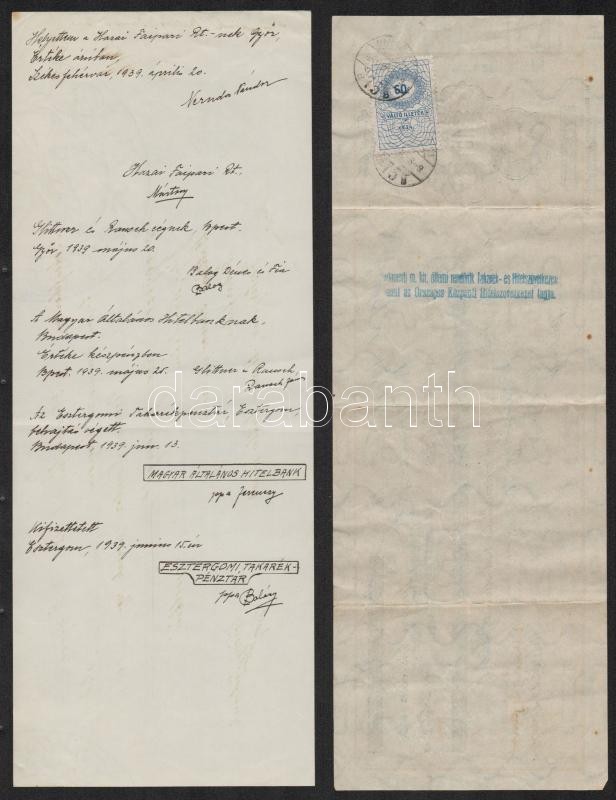 Helyettem a Hazai Faipari Rt.-nek Győr,
Értéke áruban,
Székesfehérvár, 1939. április 20.
Neruda Nándor
Hazai Faipari Rt.
Glittner és Rausch cégnek, Bpest.
Győr, 1939 május 20.
Balog Dénes és Fia
A Magyar Általános Hitelbanknak,
Budapest.
Értéke készpénzben
Bpest. 1939. május 25.
Glittner és Rausch
Az Esztergomi Takarékpénztár Esztergom,
behajtás végett.
Budapest, 1939. jun. 13.
MAGYAR ÁLTALÁNOS HITELBANK
ppa Ferenczy
Kifizettetett
Esztergom, 1939. junius 15.én
ESZTERGOMI TAKARÉK-
PÉNZTÁR
ppa
60
VÁLTÓ ILLETÉK
m. kir. állami Takarék- és Hitelszövetkezet
az Országos Központi Hitelszövetkezet tagja.
darabanth